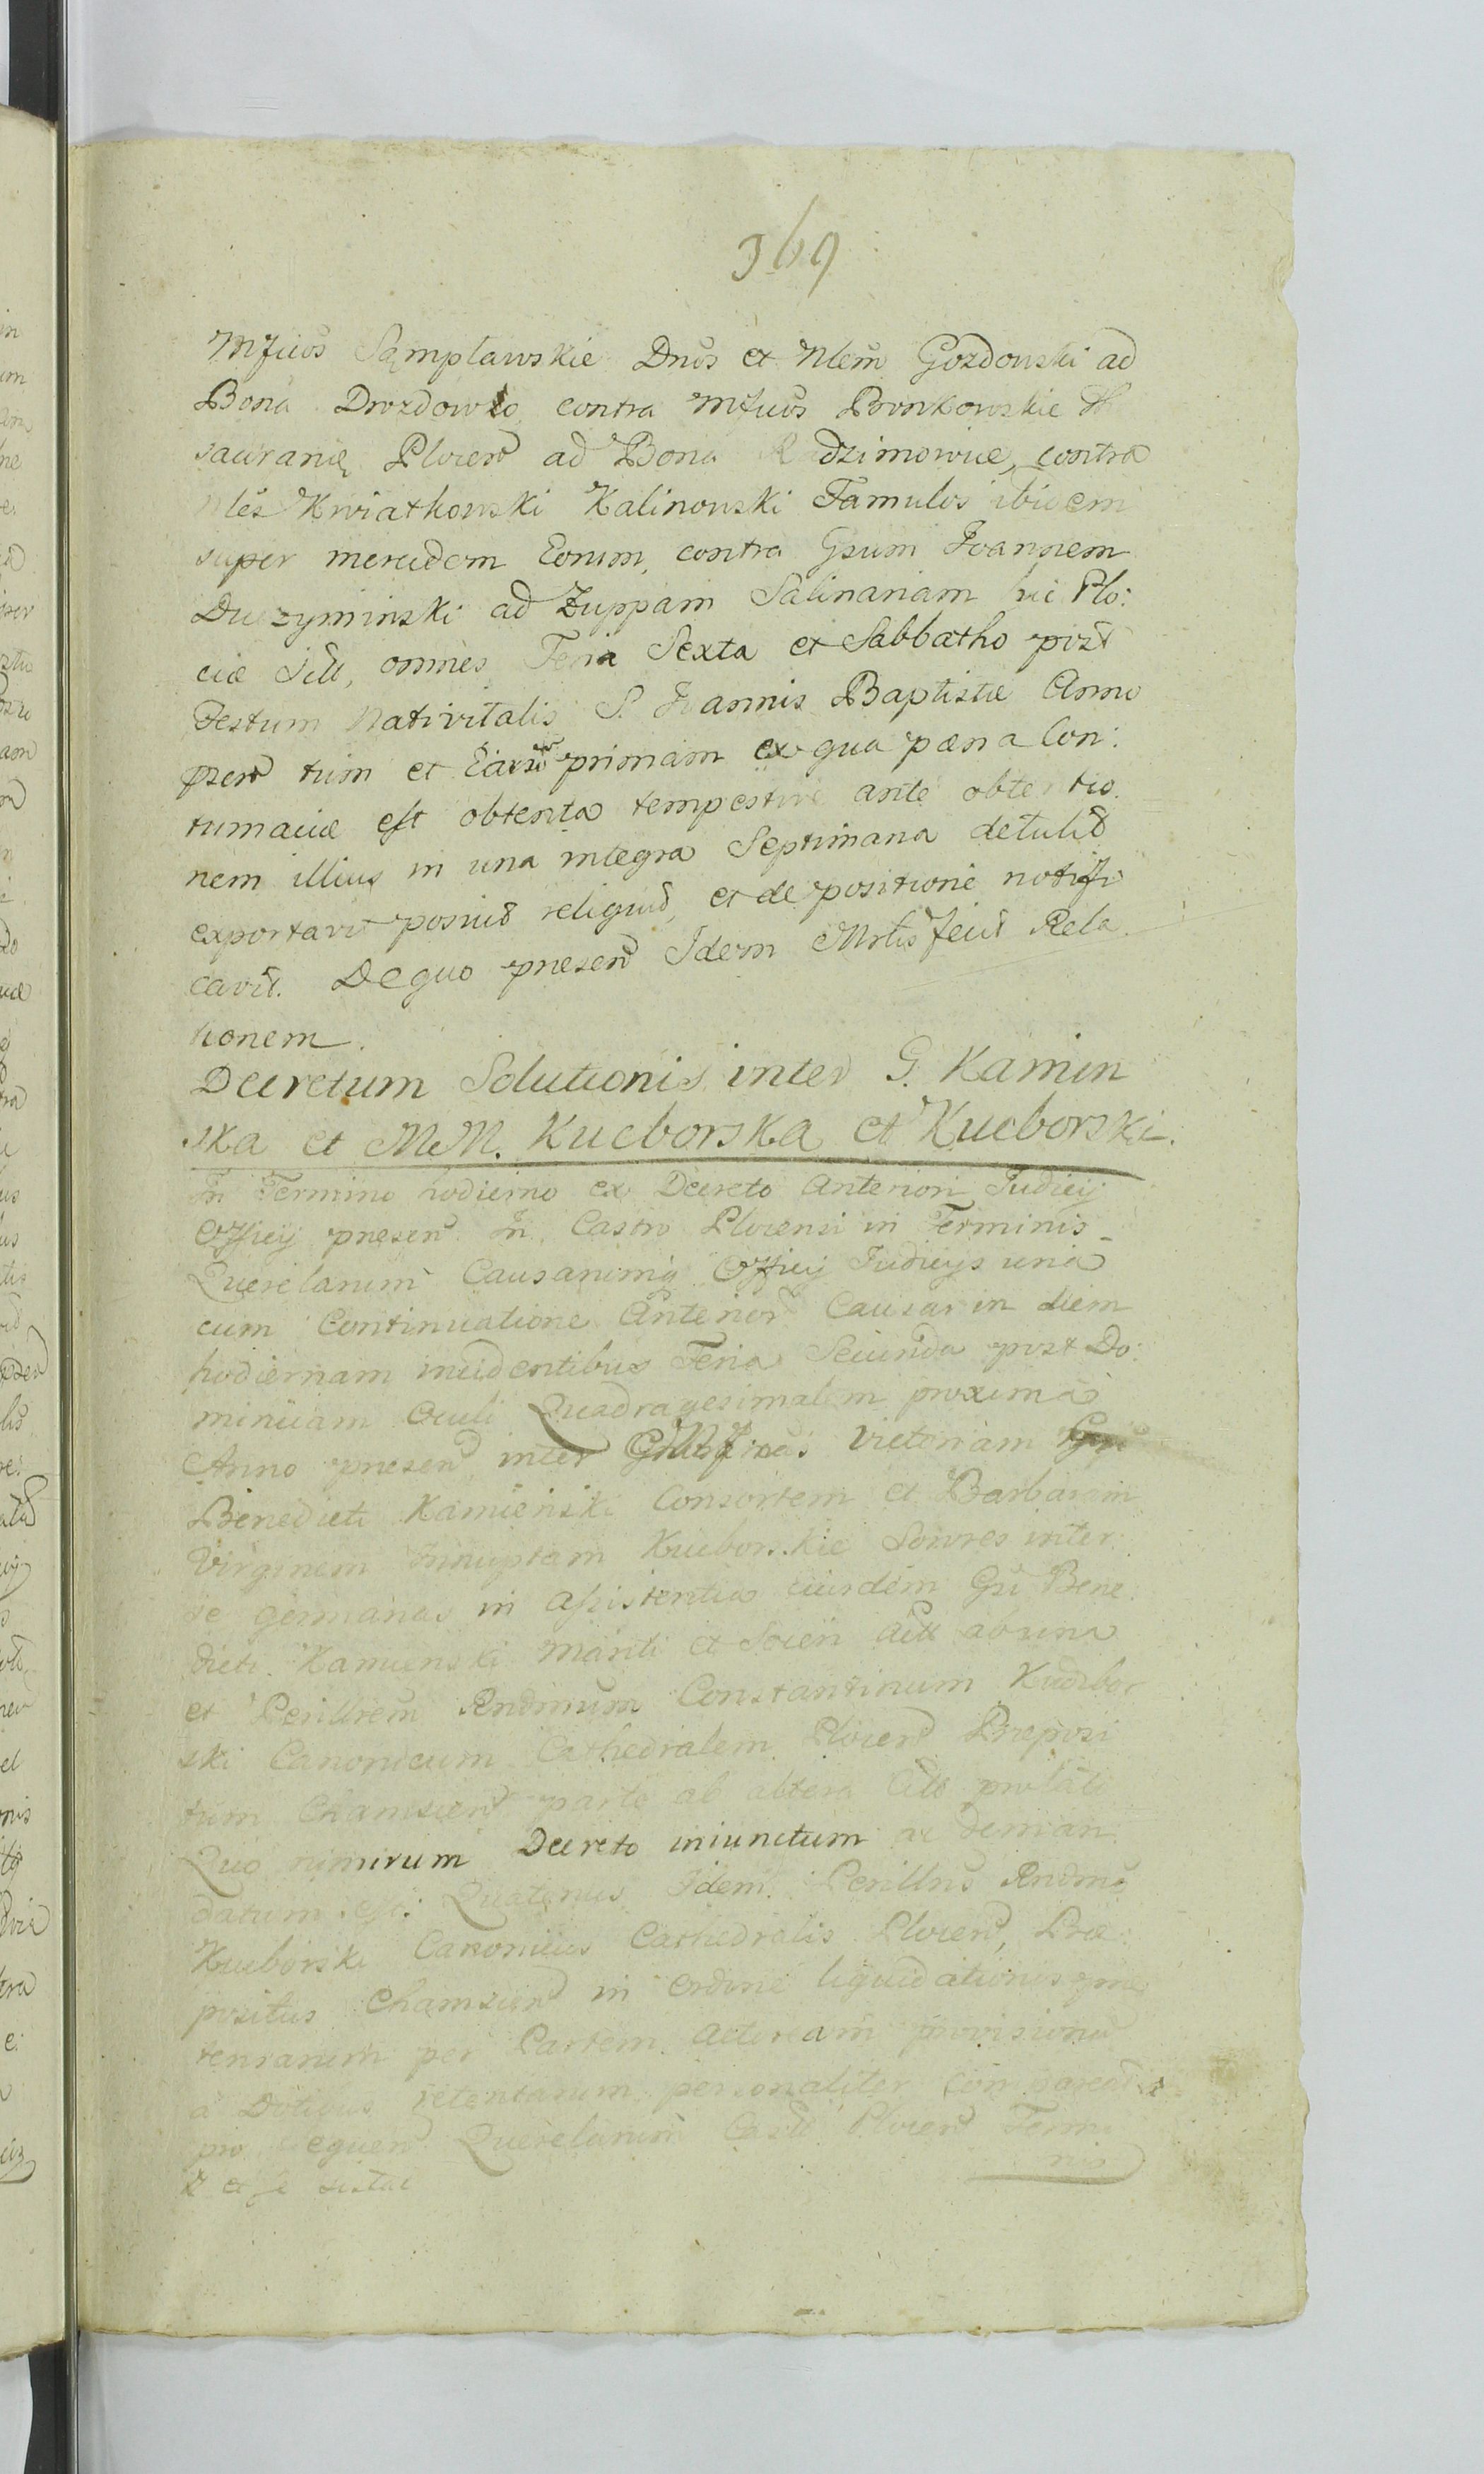 369
Mficos Sąmpławskie Dnos et Nlem Gozdowski ad
Bona Drozdowo contra Mficos Bronkowskie Th
sauranię Plocen ad Bona Radzimowice, contra
Nles Kwiatkowski Kalinowski Famulos ibidem
super mercedem Eorum, contra Gsum Joannem
Duczyminski ad Zuppam Salinariam hic Plo:
ciæ Sitt, omnes Feria Sexta et Sabbatho post
Festum Nativitatis S. Joannis Baptistæ Anno
pzen tum et primam ex qua pæna Con:
tumaciæ est obtenta tempestive ante obtentio
nem illius in una integra Septimana detulit
exportavit posuit reliquit, et de positione notifi
cavit. De quo præsen Idem Mrlis fecit Rela
tionem.
Decretum Solutionis inter G. Kamin
ska et MM. Kucborska et Kucborski.
In Termino hodierno ex Decreto Anteriori Judicij
Officij præsen In Castro Plocensi in Terminis
Querelarum Causarumq Officij Judicijs una
cum Continuatione Anterior Causar in diem
hodiernam incidentibus Feria Secunda post Do:
minicam Oculi Quadragesimalem proxima
Anno præsen inter Victoriam
Benedicti Kamienski Consortem et Barbaram
Virginem Innuptam Kucborskie Sorores inter
se germanas in assistentia eiusdem Gsi Bene
dicti Kamienski Mariti et Socii Act ab una
et Perillrem Rndmum Constantinum Kucbor
ski Canonicum Cathedralem Plocen Præposi
tum Chamscen parte ab altera Citt prolati
Quo nimirum Decreto iniunctum ac deman
datum est: Quatenus Idem Perillris Rndmus
Kucborski Canonicus Cathedralis Plocen, Præ:
positus Chamscen in ordine liquidationis præ
tensarum per Partem Actoream provisionu
a Dotibus retentarum personaliter compareat
pro sequen Querelarum Castri Plocen Termi
nis
et se sistat